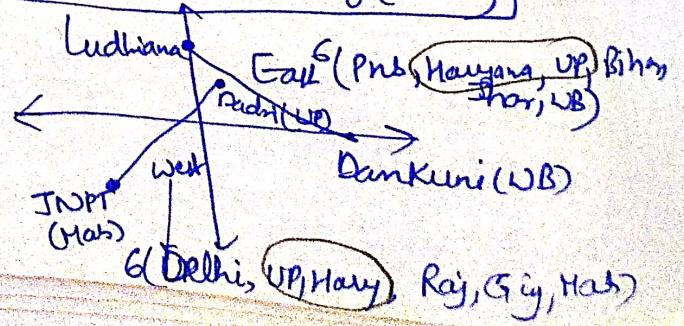 Ludhiana
East 6 (Pnb, Haryana, UP, Bihar,
Jhar, WB)
Dadri (UP)
West
Dankuni (WB)
JNPT
(Mah)
6 (Delhi, UP, Hary, Raj, Guj, Mah)